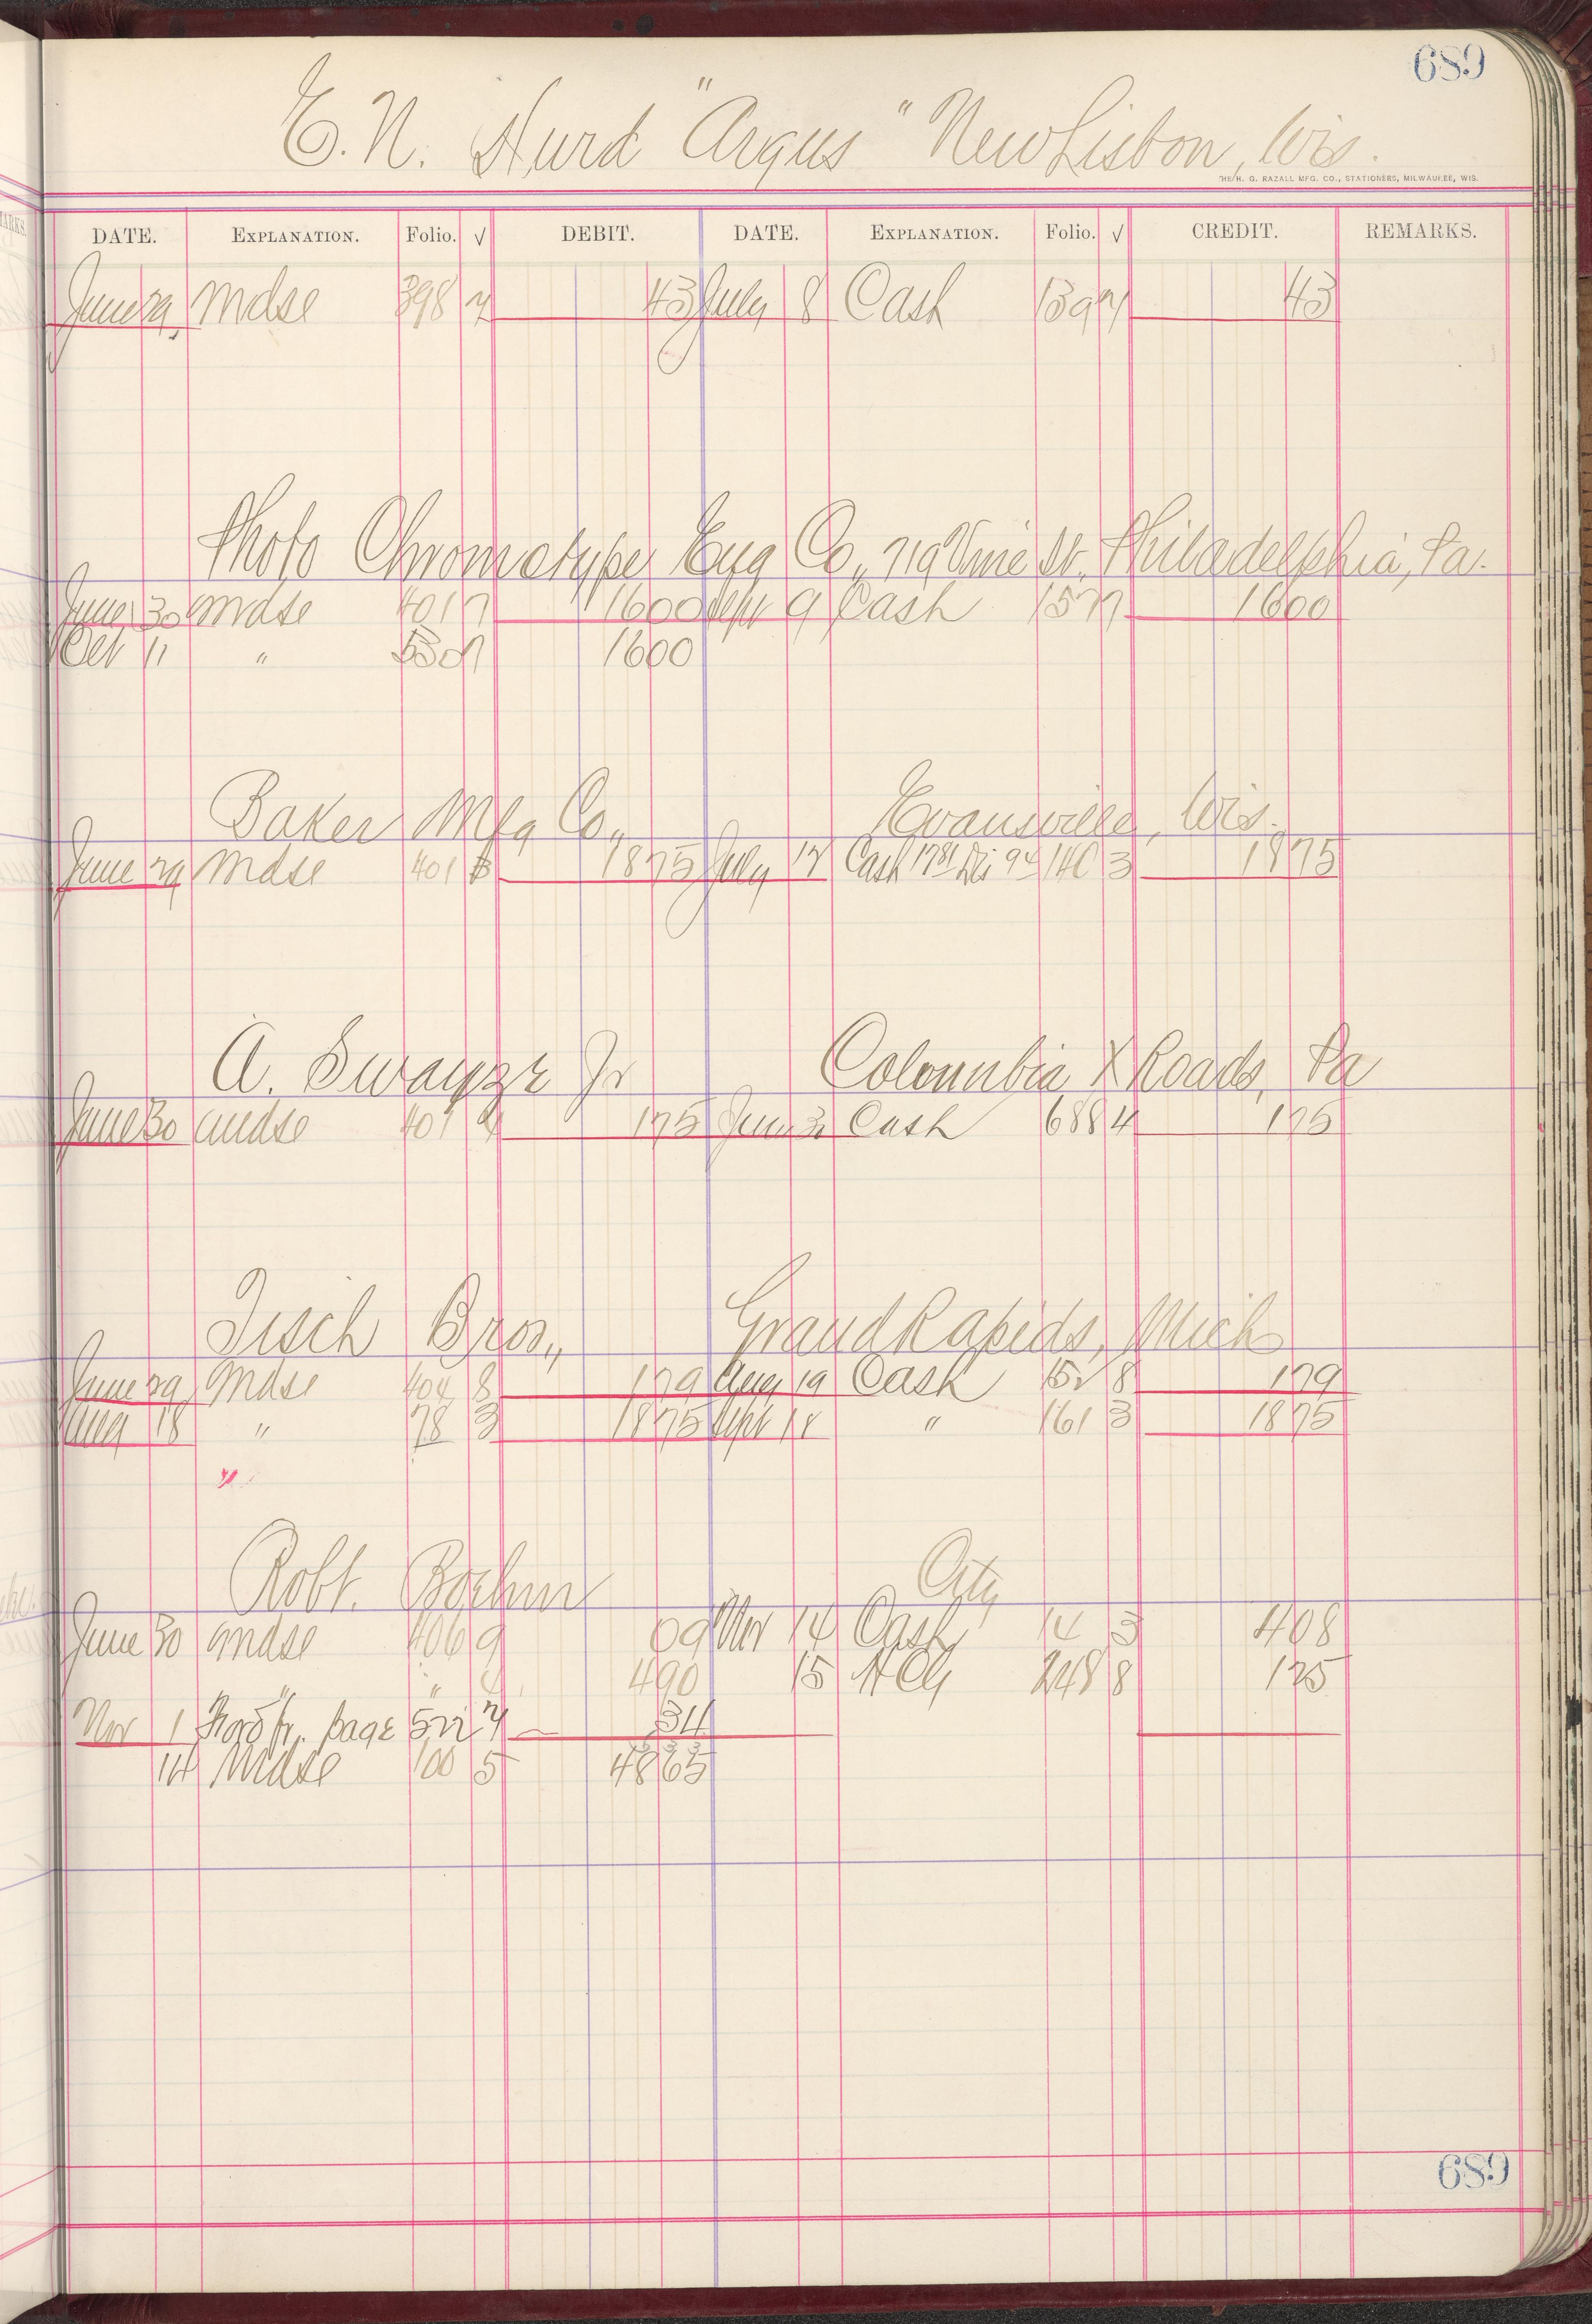 689
E. N. Hurd "Argus" New Lisbon, Wis.
THE H. G. RAZALL MFG. CO., STATIONERS, MILWAUKEE, WIS.
DATE. EXPLANATION. Folio. √ DEBIT. DATE. EXPLANATION. Folio. √ CREDIT. REMARKS.
June 29 Mdse 398 7 43 July 8 Cash 139 7 43
Photo Chromotype Eng Co., 719 Vine St. Philadelphia, Pa.
June 30 Mdse 401 7 1600 Sept 9 Cash 157 7 1600
Oct 11 " 7 1600
Baker Mfg Co., Evansville, Wis.
June 29 Mdse 401 3 1875 July 12 Cash 1781 Dis 94 140 3 1875
A. Swayze Jr Columbia X Roads, Pa
June 30 Mdse 401 4 175 June 30 Cash 688 4 175
Tisch Bros., Grand Rapids, Mich
June 29 Mdse 404 8 179 Aug 19 Cash 152 8 179
Aug 18 " 78 3 1875 Sept 12 " 161 3 1875
"
Robt. Boehm City
June 30 Mdse 406 9 09 Nov 14 Cash 14 3 408
" " 490 15 248 8 125
Nov 1 Ford fr. page 522 7 34
14 Mdse 100 5 4865
689